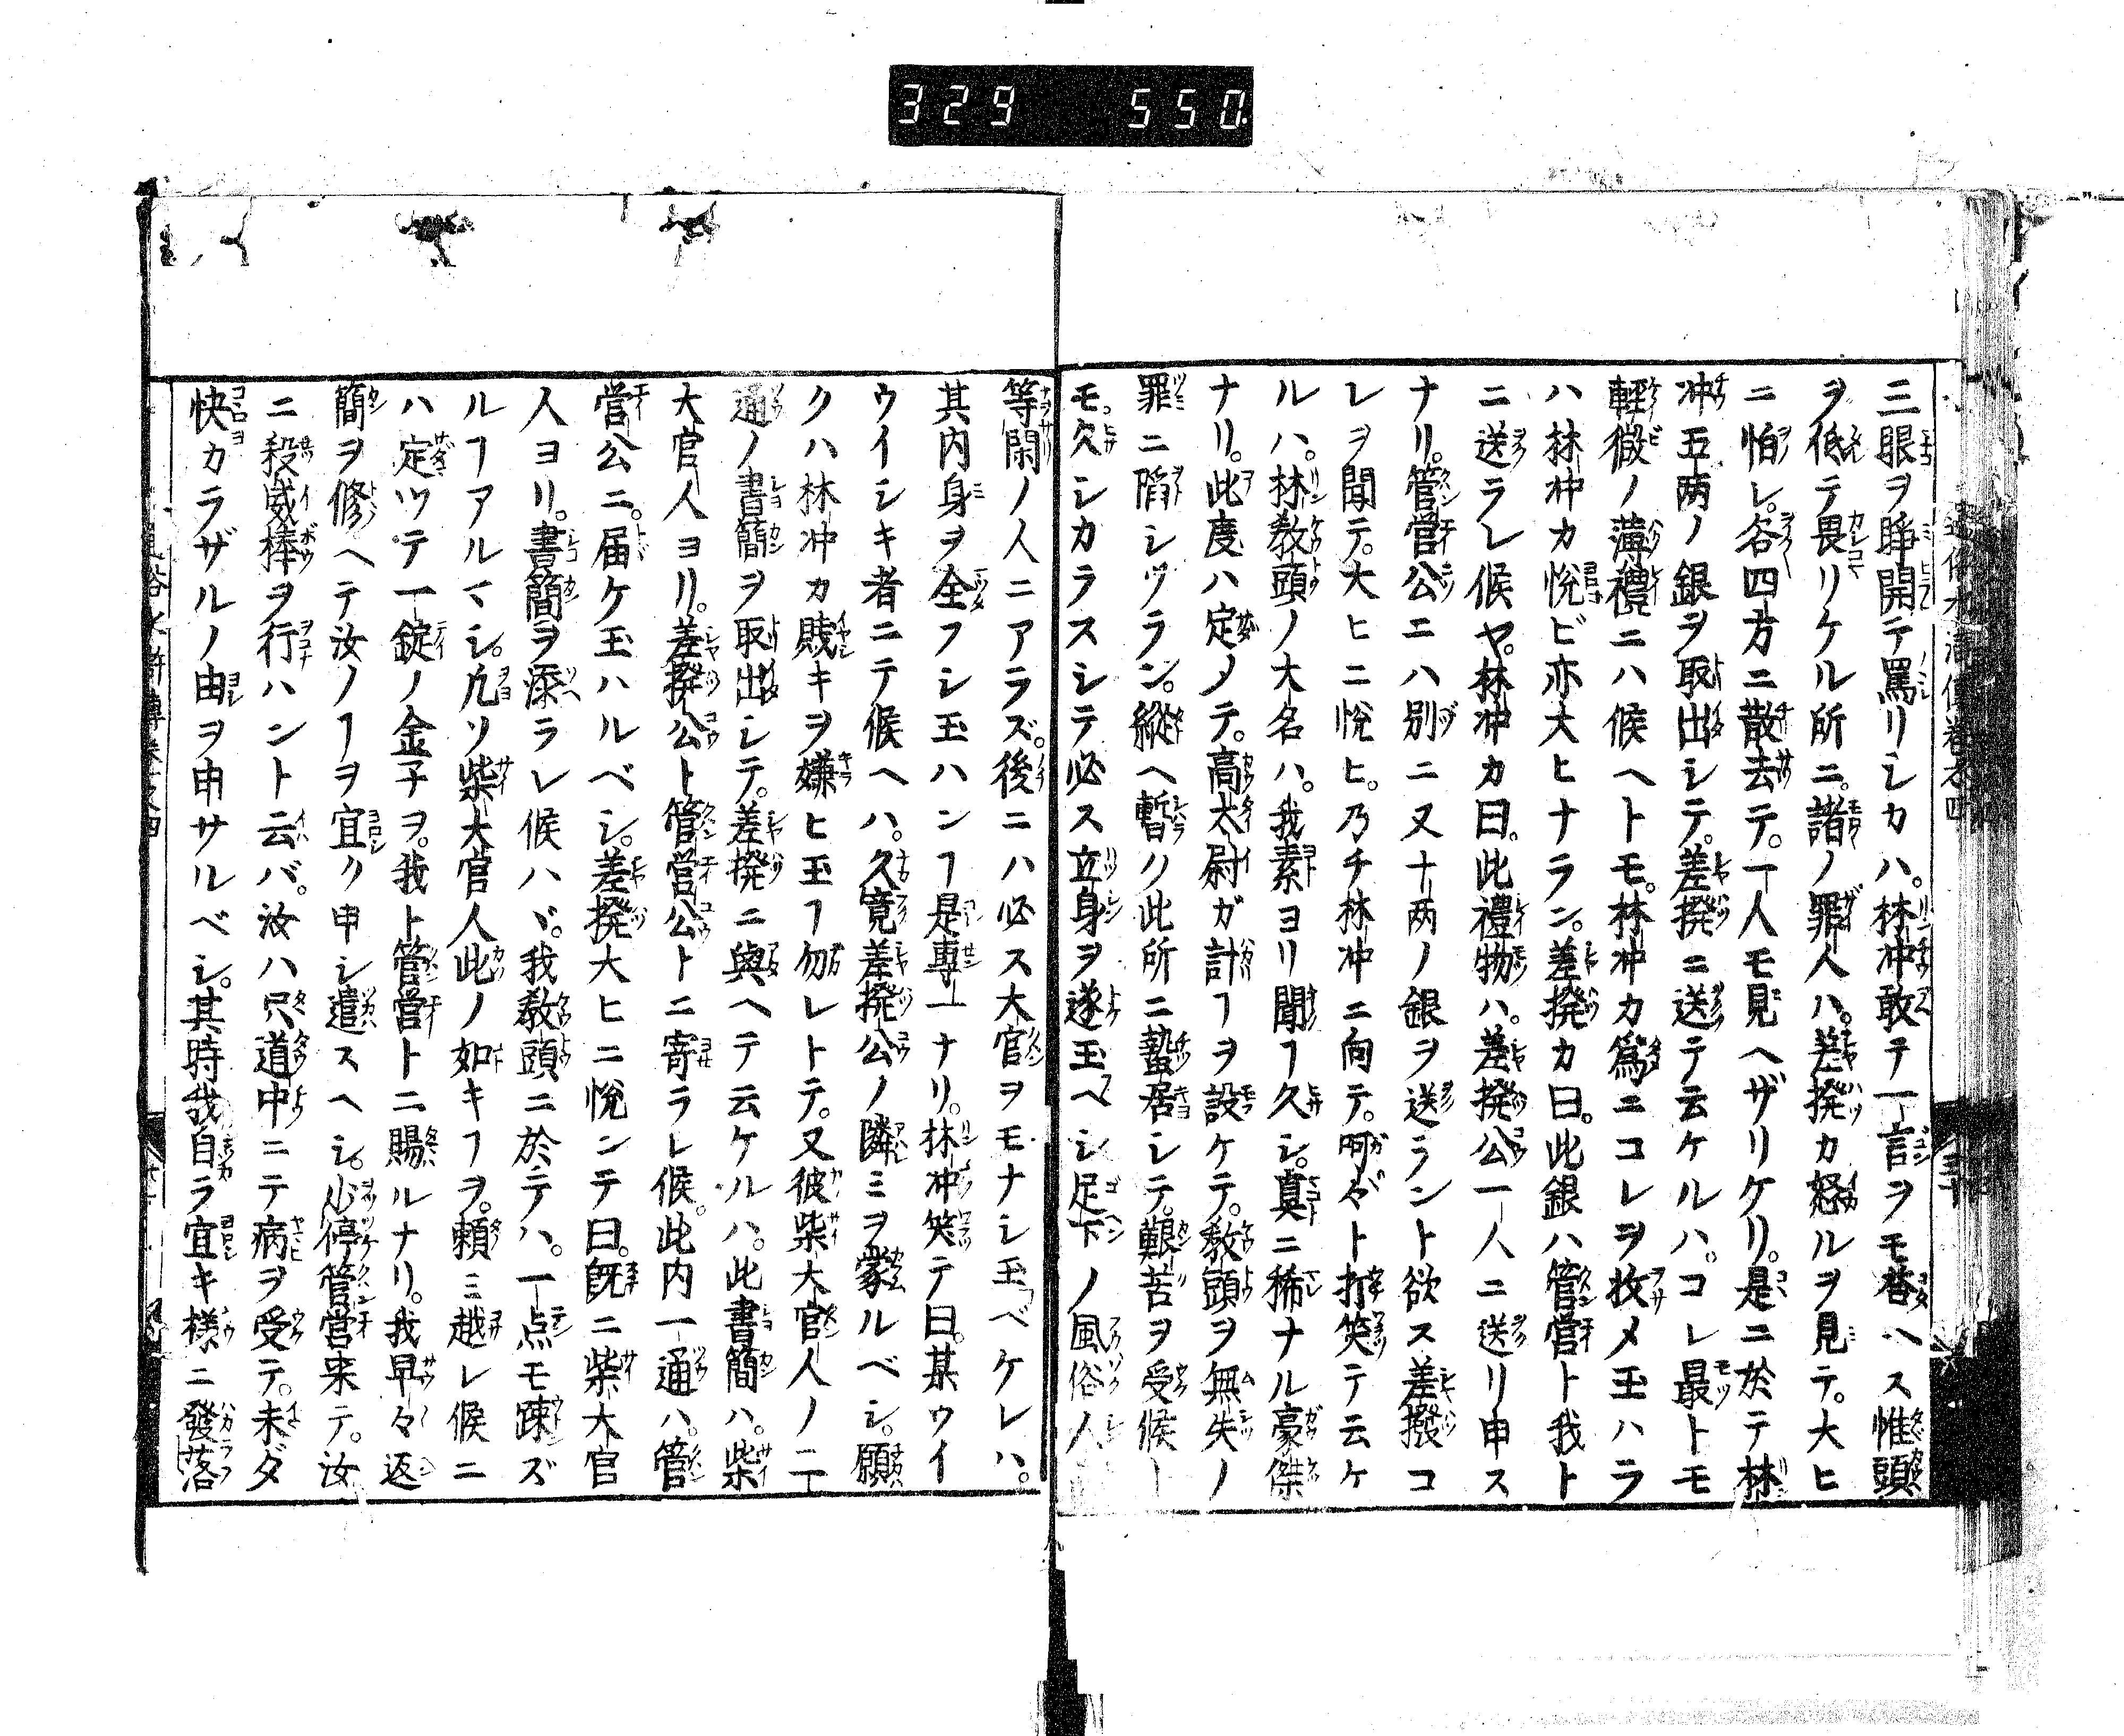 329 550
三眼ヲ睜開テ罵リシカハ。林冲敢テ一言ヲモ答ヘス惟頭
ヲ低テ畏リケル所ニ。諸ノ罪人ハ。差撥カ怒ルヲ見テ。大ヒ
ニ怕レ。各四方ニ散去テ。一人モ見ヘザリケリ。是ニ於テ林
冲五两ノ銀ヲ取出シテ。差撥ニ送テ云ケルハ。コレ最トモ
輕微ノ薄禮ニハ候ヘトモ。林冲カ爲ニコレヲ收メ玉ハラ
ハ林冲カ悅ビ亦大ヒナラン。差撥カ曰。此銀ハ管営ト我ト
ニ送ラレ候ヤ。林冲カ曰。此禮物ハ。差撥公一人ニ送リ申ス
ナリ。管営公ニハ別ニ又十两ノ銀ヲ送ラント欲ス差撥コ
レヲ聞テ。大ヒニ悅ヒ。乃チ林冲ニ向テ。啊々ト打笑テ云ケ
ルハ。林教頭ノ大名ハ。我素ヨリ聞ヿ久シ。真ニ稀ナル豪傑
ナリ。此度ハ定メテ。高太尉ガ計ヿヲ設ケテ。教頭ヲ無失ノ
罪ニ陷シツラン。縱ヘ暫ク此所ニ蟄居シテ。艱苦ヲ受候
モ。久シカラスシテ必ス立身ヲ遂玉ヘシ足下ノ風俗人
等閑ノ人ニアラズ。後ニハ必ス大官ヲモナシ玉ベケレハ。
其内身ヲ全フシ玉ハンヿ是専一ナリ。林冲笑テ曰。某ウイ
ウイシキ者ニテ候ヘハ。久竟差撥公ノ隣ミヲ蒙ルベシ。願
クハ林冲カ賤キヲ嫌ヒ玉ヿ勿レトテ。又彼柴大官人ノ二
通ノ書簡ヲ取出シテ。差撥ニ與ヘテ云ケルハ。此書簡ハ。柴
大官人ヨリ。差撥公ト管営公トニ寄ラレ候。此内一通ハ。管
営公ニ。届ケ玉ハルベシ。差撥大ヒニ悅ンテ曰。既ニ柴大官
人ヨリ。書簡ヲ添ラレ候ハヾ。我教頭ニ於テハ。一点モ踈ズ
ルヿアルマシ。凢ソ柴大官人此ノ如キヿヲ。頼ミ越レ候ニ
ハ定ツテ一錠ノ金子ヲ。我ト管営トニ賜ルナリ。我早々返
簡ヲ修ヘテ汝ノヿヲ宜ク申シ遣スヘシ。少停管営来テ。汝
ニ殺威棒ヲ行ハント云バ。汝ハ只道中ニテ病ヲ受テ。未ダ
快カラザルノ由ヲ申サルベシ。其時我自ラ宜キ様ニ發落